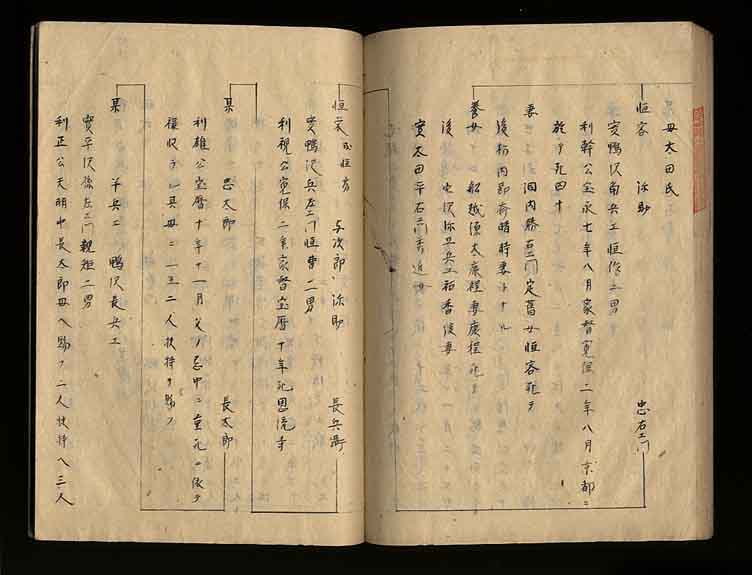 母太田氏
恒容 弥助 忠右エ門
実鴨沢南兵エ恒作二男
利幹公宝永七年八月家督寛保二年八月京都ニ
於テ死四十
妻 洞内勝右エ門定旧女恒容死テ
後栃内即斎晴時妻トナル
養女 船越源太康程妻康程死
後 沢弥五兵エ祐香後妻
実太田平右エ門秀近女
恒家 或恒方 与次郎 弥助 長兵衛
実鴨沢兵左エ門恒豊二男
利視公寛保二年家督宝暦十年死恩流寺
某 忠太郎 長太郎
利雄公宝暦十年十一月父ノ忌中ニ重死 依テ
禄収 其母ニ一生二人扶持ヲ賜フ
某 半兵エ 鴨沢長兵エ
実平沢 左エ門親矩二男
利正公天明中長太郎母ヘ賜フ二人扶持ヘ三人